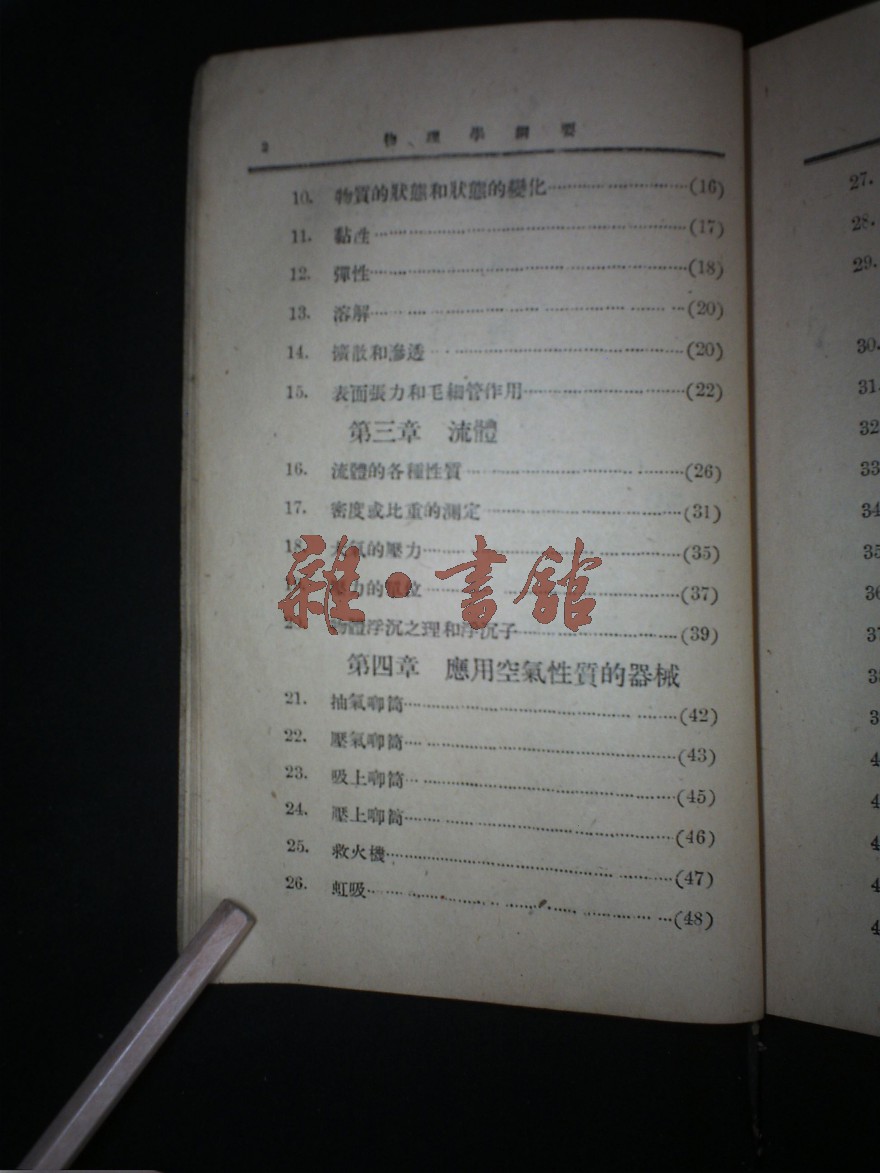 2 物理學綱要
10. 物質的狀態和狀態的變化……(16)
11. 黏性……(17)
12. 彈性……(18)
13. 溶解……(20)
14. 擴散和滲透……(20)
15. 表面張力和毛細管作用……(22)
第三章 流體
16. 流體的各種性質……(26)
17. 密度或比重的測定……(31)
18. 大氣的壓力……(35)
壓力的單位……(37)
物體浮沉之理和浮沉子……(39)
第四章 應用空氣性質的器械
21. 抽氣唧筒……(42)
22. 壓氣唧筒……(43)
23. 吸上唧筒……(45)
24. 壓上唧筒……(46)
25. 救火機……(47)
26. 虹吸……(48)
雜·書館
27.
28.
29.
30.
31.
32
33
34
35
36
37
38
3
4
4
4
4
4